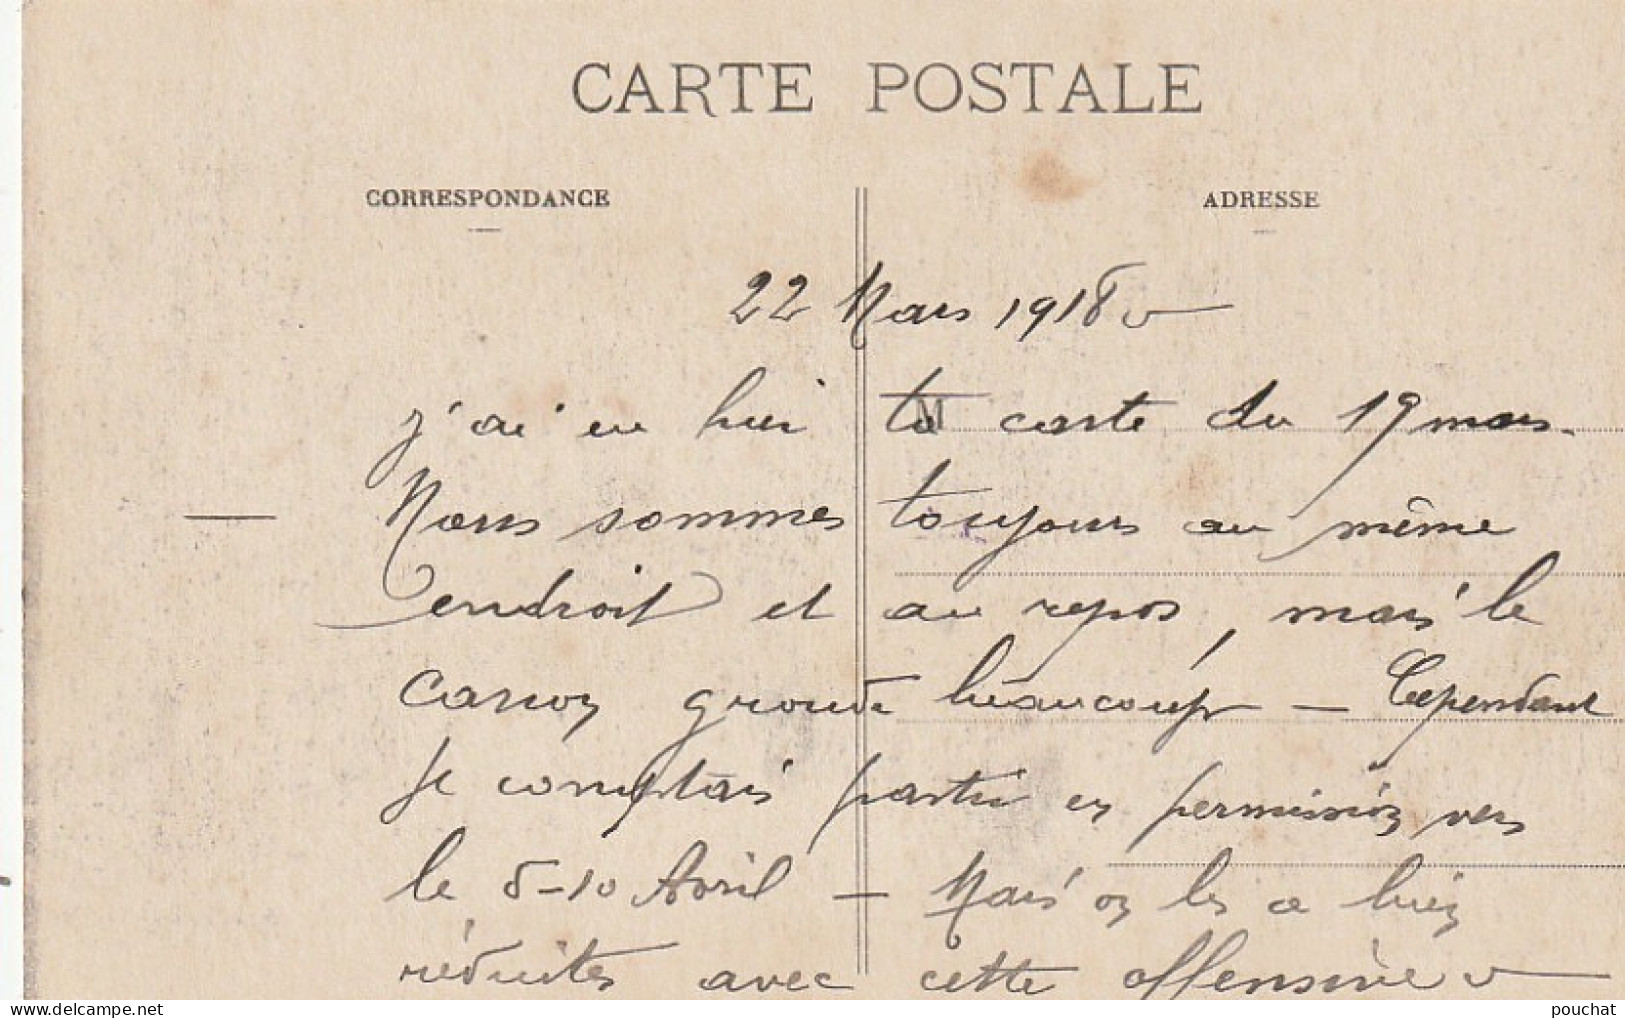 CARTE POSTALE
CORRESPONDANCE
ADRESSE
22 Mars 1918
M
j'ai eu hier ta carte du 19 mars.
— Nous sommes toujours au même
endroit et au repos, mais le
canon gronde beaucoup — Cependant
je comptais partir en permission vers
le 8-10 Avril — Mais on les a bien
réduites avec cette offensive
© delcampe.net
pouchat